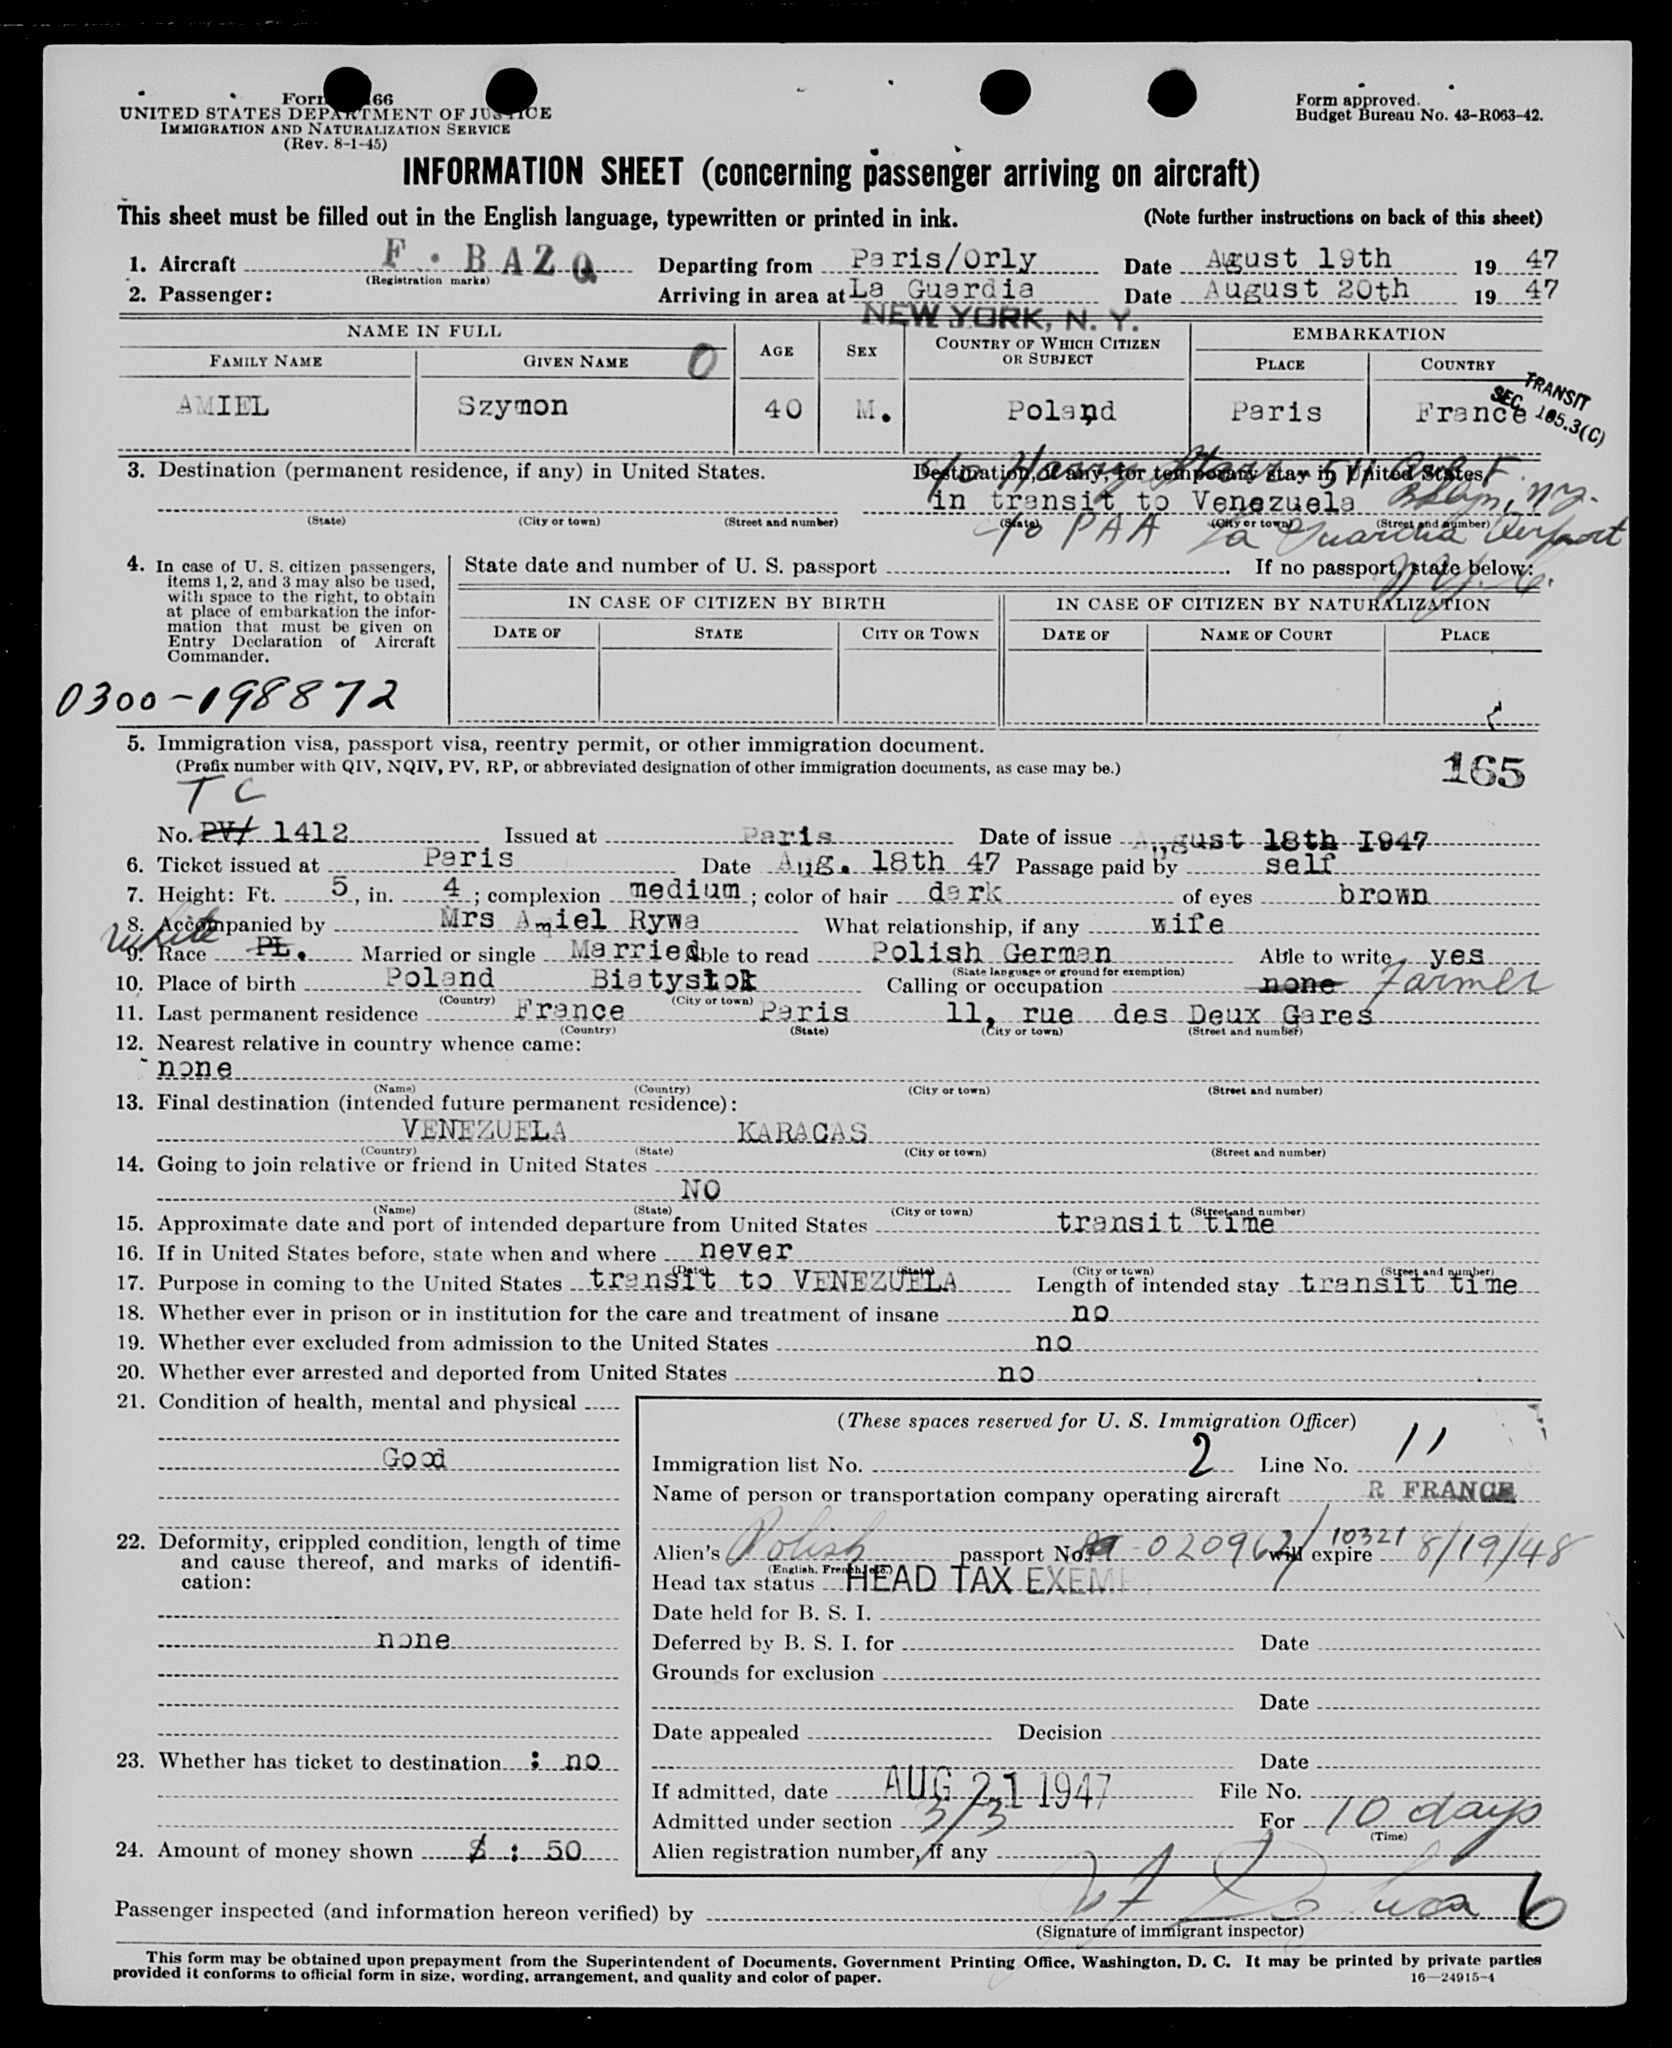 Form 66
UNITED STATES DEPARTMENT OF JUSTICE
IMMIGRATION AND NATURALIZATION SERVICE
(Rev. 8-1-45)
Form approved.
Budget Bureau No. 43-R063-42.
INFORMATION SHEET (concerning passenger arriving on aircraft)
This sheet must be filled out in the English language, typewritten or printed in ink. (Note further instructions on back of this sheet)
1. Aircraft F. BAZQ Departing from Paris/Orly Date August 19th 19 47
(Registration marks)
2. Passenger: Arriving in area at La Guardia Date August 20th 19 47
NEW YORK, N. Y.
NAME IN FULL AGE SEX COUNTRY OF WHICH CITIZEN OR SUBJECT EMBARKATION
FAMILY NAME GIVEN NAME 0 PLACE COUNTRY
AMIEL Szymon 40 M. Poland Paris France
TRANSIT
SEC. 165.3(C)
3. Destination (permanent residence, if any) in United States. Destination, if any, for temporary stay in United States
c/o Harry 511
in transit to Venezuela Bklyn, N.Y.
(State) (City or town) (Street and number) (State) (City or town) (Street and number)
c/o PAA La Guardia Airport
N.Y.C.
4. In case of U. S. citizen passengers,
items 1, 2, and 3 may also be used,
with space to the right, to obtain
at place of embarkation the infor-
mation that must be given on
Entry Declaration of Aircraft
Commander.
State date and number of U. S. passport . If no passport, state below:
IN CASE OF CITIZEN BY BIRTH IN CASE OF CITIZEN BY NATURALIZATION
DATE OF STATE CITY OR TOWN DATE OF NAME OF COURT PLACE
0300-198872
5. Immigration visa, passport visa, reentry permit, or other immigration document.
(Prefix number with QIV, NQIV, PV, RP, or abbreviated designation of other immigration documents, as case may be.)
165
TC
No. PV/ 1412 Issued at Paris Date of issue August 18th 1947
6. Ticket issued at Paris Date Aug. 18th 47 Passage paid by self
7. Height: Ft. 5, in. 4; complexion medium; color of hair dark of eyes brown
8. Accompanied by Mrs Amiel Rywa What relationship, if any wife
White
9. Race PL. Married or single Married Able to read Polish German Able to write yes
(State language or ground for exemption)
10. Place of birth Poland Biatystok Calling or occupation none Farmer
(Country) (City or town)
11. Last permanent residence France Paris 11, rue des Deux Gares
(Country) (State) (City or town) (Street and number)
12. Nearest relative in country whence came:
none
(Name) (Country) (City or town) (Street and number)
13. Final destination (intended future permanent residence):
VENEZUELA KARACAS
(Country) (State) (City or town) (Street and number)
14. Going to join relative or friend in United States
NO
(Name) (State) (City or town) (Street and number)
15. Approximate date and port of intended departure from United States transit time
16. If in United States before, state when and where never
(Date) (State) (City or town) (Street and number)
17. Purpose in coming to the United States transit to VENEZUELA Length of intended stay transit time
18. Whether ever in prison or in institution for the care and treatment of insane no
19. Whether ever excluded from admission to the United States no
20. Whether ever arrested and deported from United States no
21. Condition of health, mental and physical
Good
22. Deformity, crippled condition, length of time
and cause thereof, and marks of identifi-
cation:
none
23. Whether has ticket to destination : no
24. Amount of money shown $ : 50
(These spaces reserved for U. S. Immigration Officer)
Immigration list No. 2 Line No. 11
Name of person or transportation company operating aircraft R FRANCE
Alien's Polish passport No. 020962/10321 will expire 8/19/48
(English, French, etc.)
Head tax status HEAD TAX EXEM
Date held for B. S. I.
Deferred by B. S. I. for Date
Grounds for exclusion
Date
Date appealed Decision
Date
If admitted, date AUG 21 1947 File No.
Admitted under section 3/3 For 10 days
(Time)
Alien registration number, if any
Passenger inspected (and information hereon verified) by 6
(Signature of immigrant inspector)
This form may be obtained upon prepayment from the Superintendent of Documents, Government Printing Office, Washington, D. C. It may be printed by private parties
provided it conforms to official form in size, wording, arrangement, and quality and color of paper. 16—24915-4